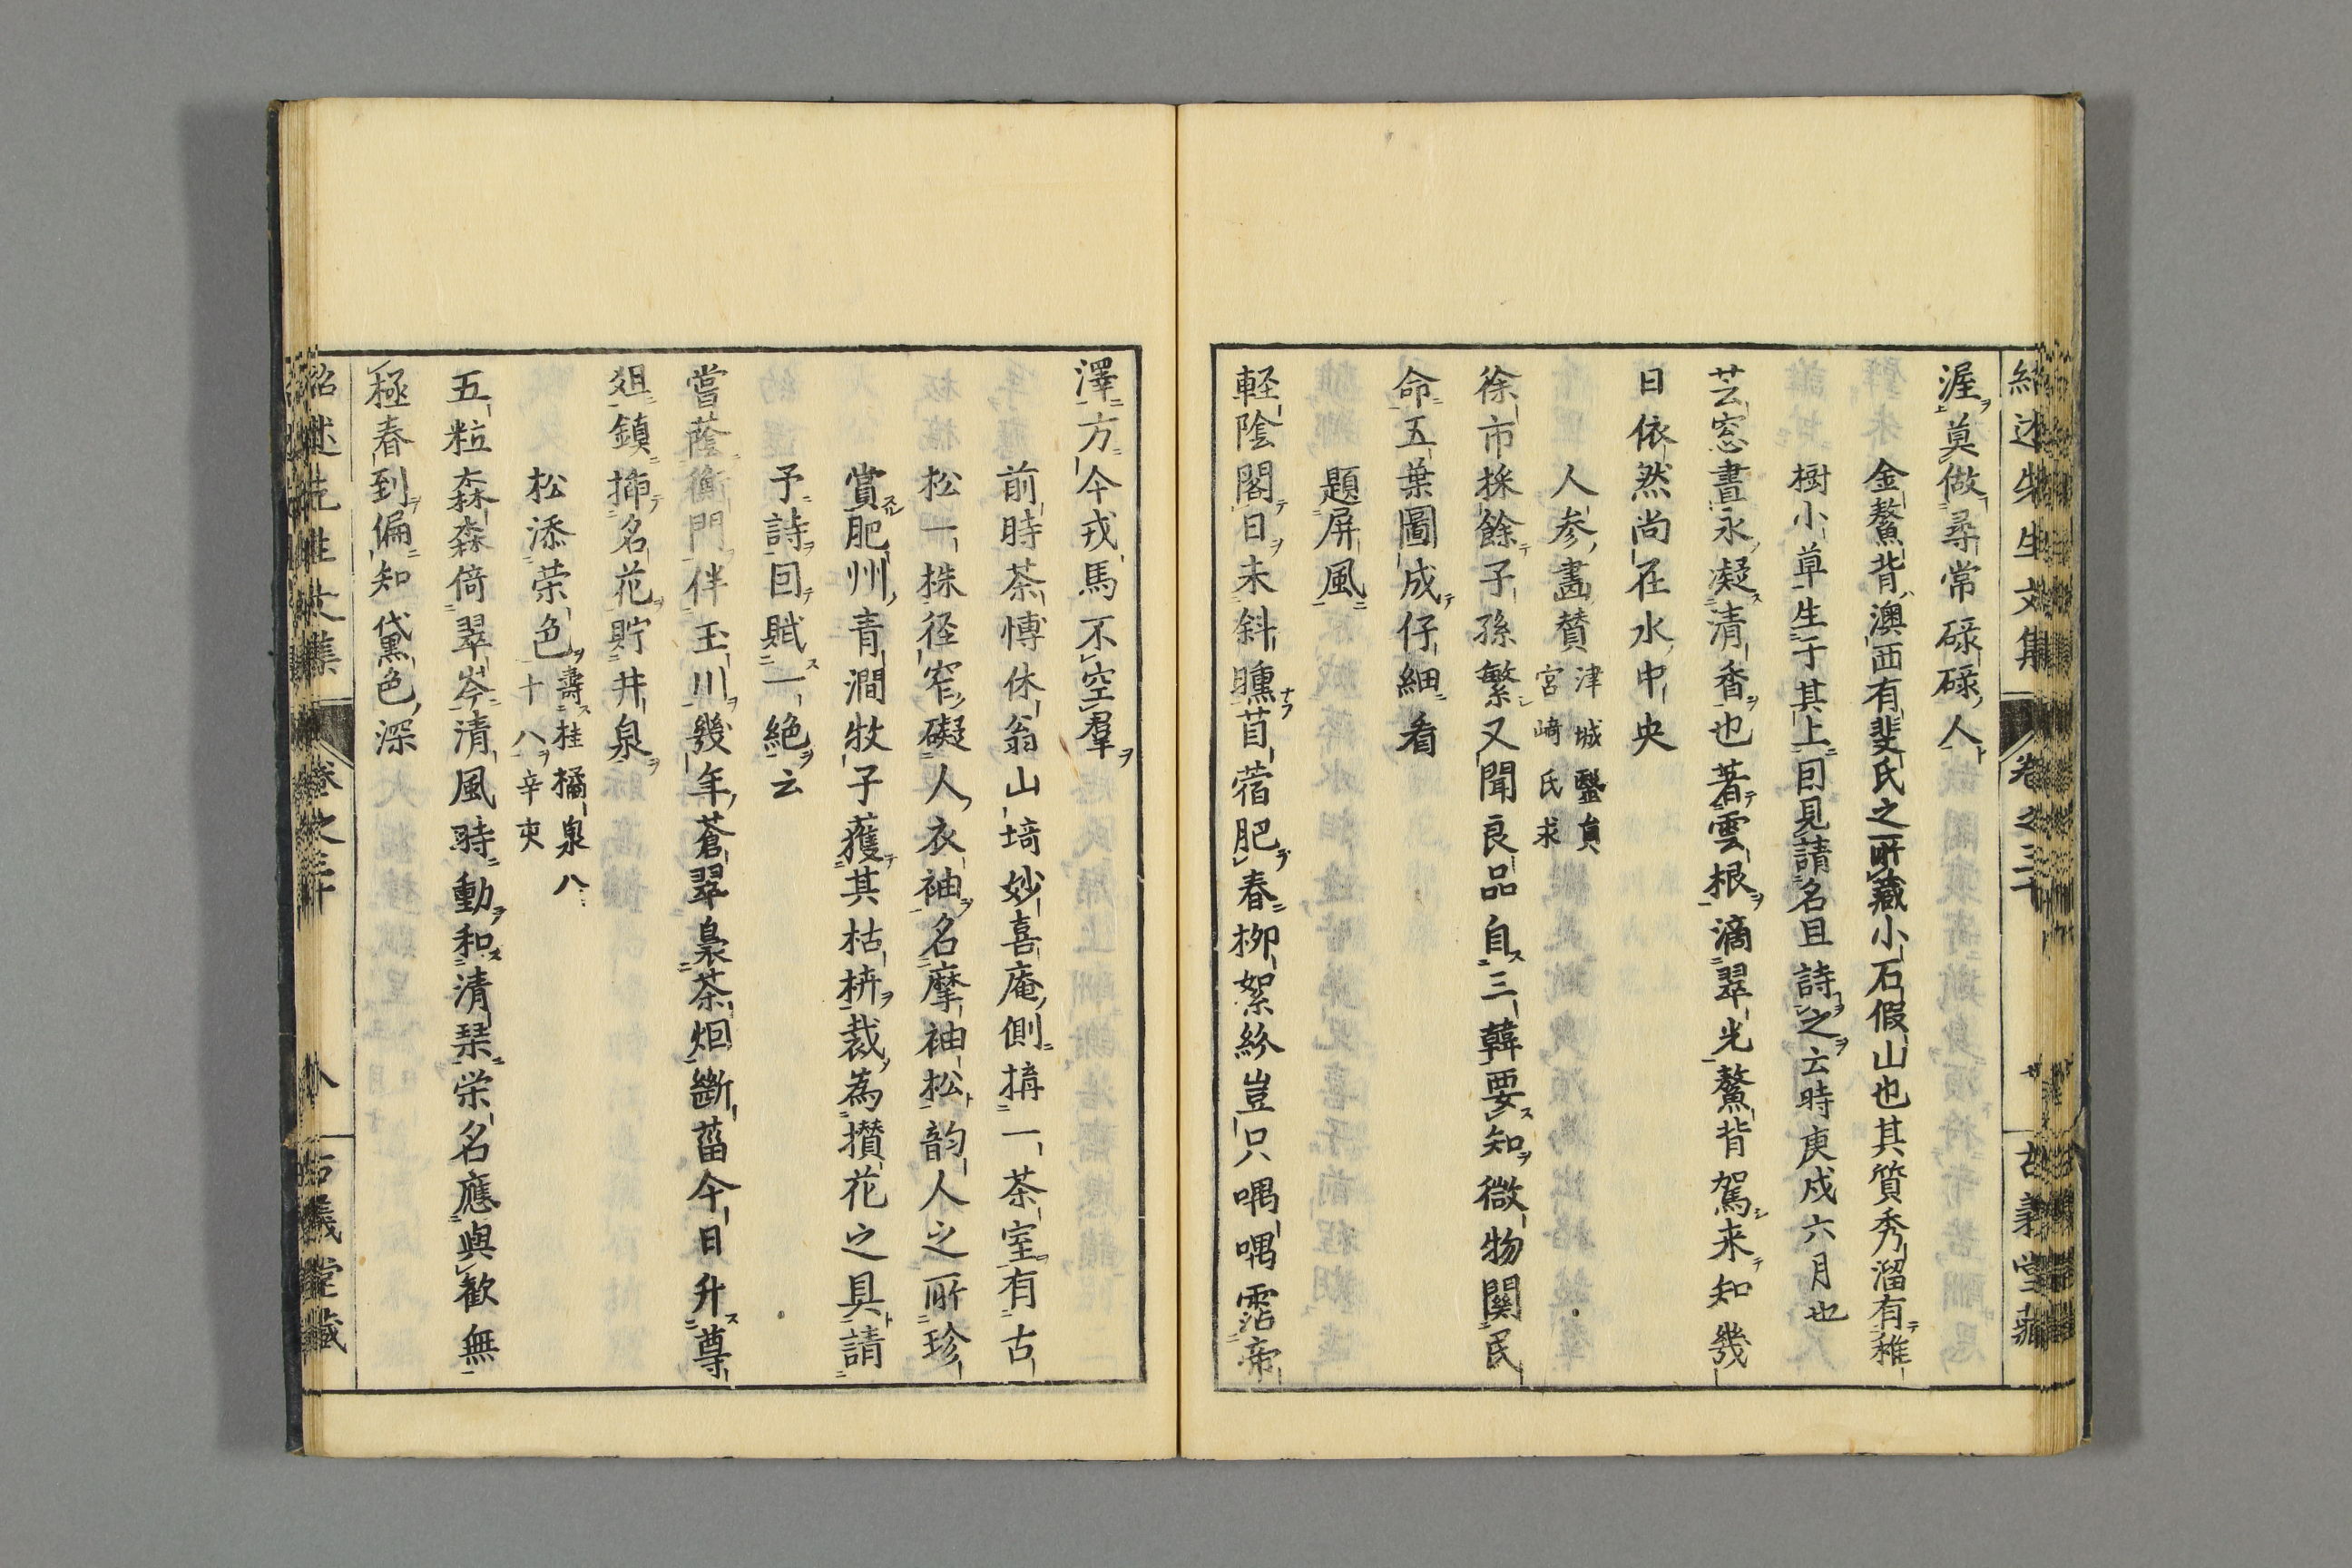 紹述先生文集 卷之三十 古義堂藏
渥莫做尋常碌碌人
金鰲背澳西有斐氏之所藏小石假山也其質秀溜有稚
樹小草生于其上囙見請名且詩之云時庚戍六月也
芸窓晝永凝清香也著雲根滴翠光鰲背駕来知幾
日依然尚在水中央
人参畵賛 津城醫員
宮﨑氏求
徐市採餘子孫繁又聞良品自三韓要知微物關民
命五葉圖成仔細看
題屏風
軽陰閣日未斜矄苜蓿肥春栁絮紛豈只喁喁霑帝
澤方今戎馬不空羣
前時茶愽休翁山埼妙喜庵側搆一茶室有古
松一株径窄礙人衣袖名摩袖松韵人之所珍
賞肥州青澗牧子獲其枯枿裁為攅花之具請
予詩囘賦一絶云
嘗蔭衡門伴玉川幾年蒼翠裊茶烟斷菑今日升尊
爼鎮揷名花貯井泉
松添荣色 壽桂橘泉八
十八辛亥
五粒森森倚翠岑清風時動和清琹栄名應與歓無
極春到偏知黛色深
紹述先生文集 卷之三十 八 古義堂藏